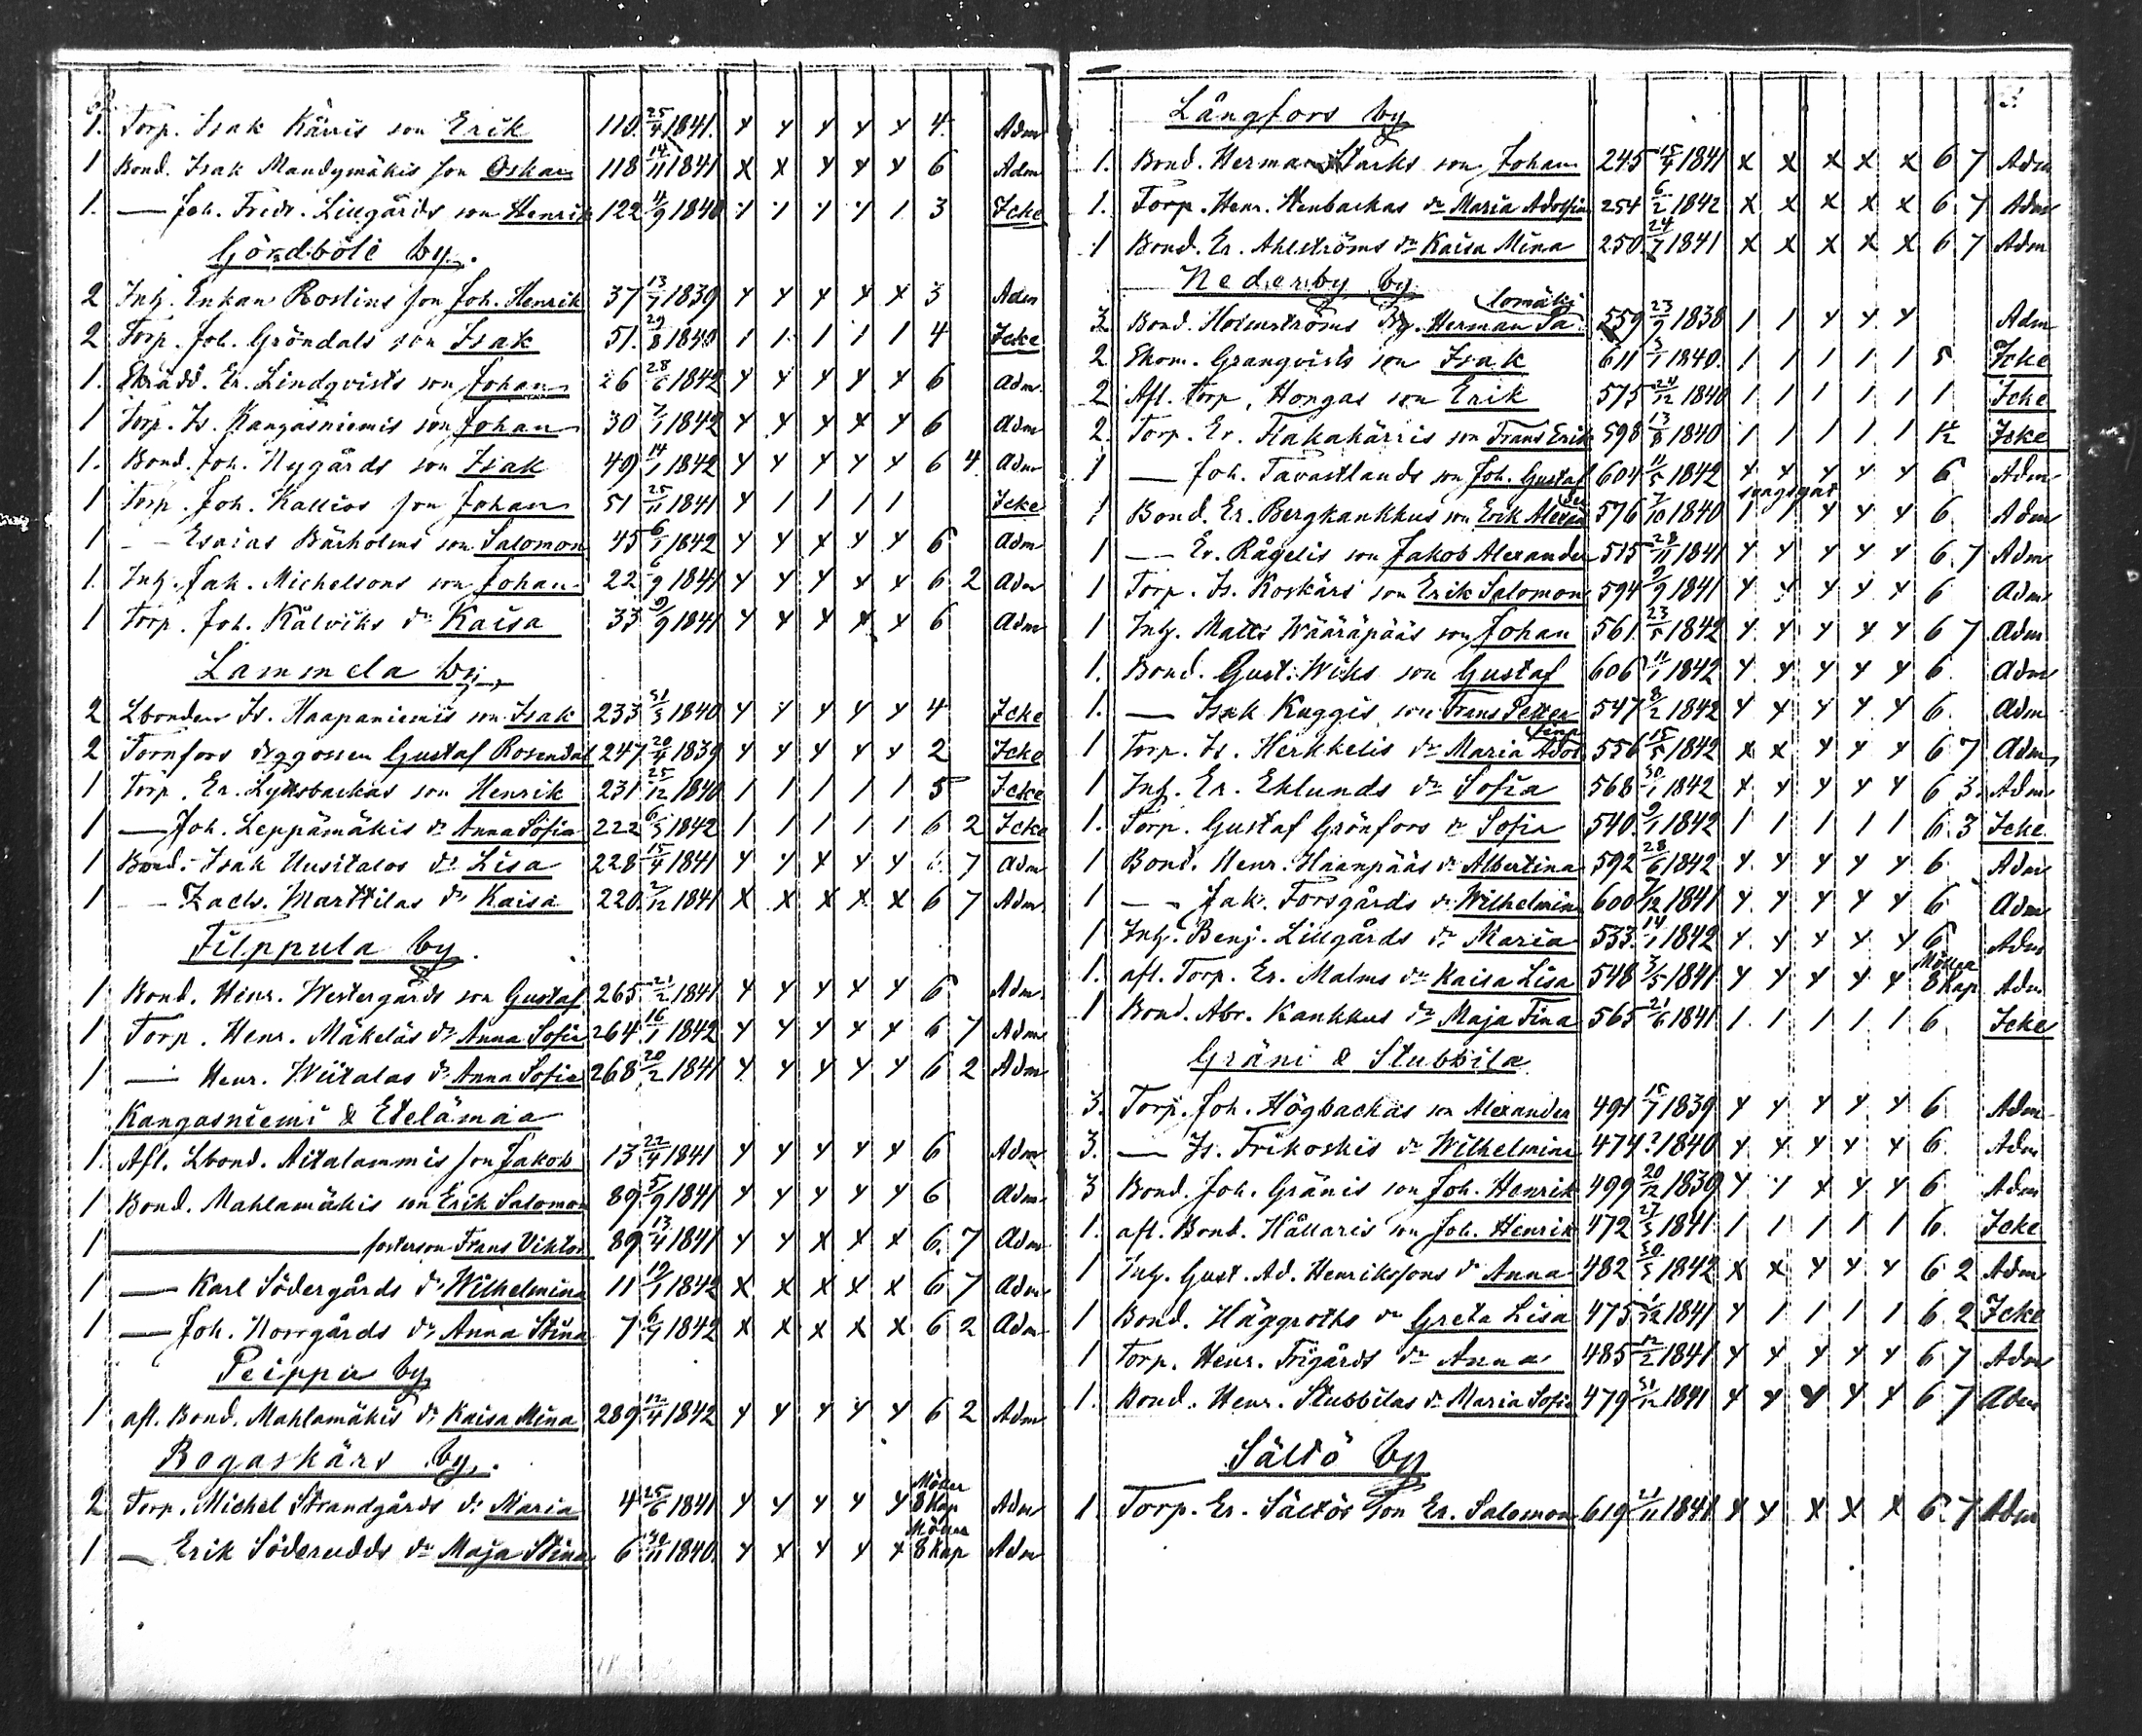 1. Torp. Isak Kärris son Erik 110. 25/4 1841. x x x x x 4. Adm
1 Bond. Isak Mandymäkis son Oskar 118 14/11 1841 x x x x x 6 Adm
1. — Joh. Fredr. Lillgårds son Henrik 122 11/9 1840 1 1 1 1 1 3 Icke
Gördböle by.
2 Inh. Enkan Roslins son Joh. Henrik 37 13/7 1839 x x x x x 3 Adm
2 Torp. Joh. Gröndals son Isak 51. 29/8 1840 1 1 1 1 1 4 Icke
1. Skrädd. Er. Lindqvists son Johan 26 28/6 1842 x x x x x 6 Adm.
1 Torp. Is. Kangasniemis son Johan 30 7/1 1842 x x x x x 6 Adm
1. Bond. Joh. Nygårds son Isak 49 14/1 1842 x x x x x 6 4 Adm
1 Torp. Joh. Kallios son Johan 51 25/11 1841 x 1 1 1 1 Icke
1 — Esaias Bärholms son Salomon 45 6/1 1842 x x x x x 6 Adm
1. Inh. Jak. Michelsons son Johan 22 6/9 1841 x x x x x 6 2 Adm
1 Torp. Joh. Kålviks dr Kaisa 33 9/9 1841 x x x x x 6 Adm
Lammela by
2 Lbonden Is. Haapaniemis son Isak 233 31/3 1840 x x x x x 4 Icke
2 Tornfors drggossen Gustaf Rosendal 247 20/4 1839 x x x x x 2 Icke
1 Torp. Er. Lyttsbackas son Henrik 231 25/12 1840 1 1 1 1 1 5 Icke
1 — Joh. Leppämäkis dr Anna Sofia 222 6/3 1842 1 1 1 1 1 6 2 Icke
1 Bond. Isak Uusitalos dr Lisa 228 15/4 1841 x x x x x 6 7 Adm
1 — Zachr. Marttilas dr Kaisa 220. 2/12 1841 x x x x x 6 7 Adm
Filppula by.
1 Bond. Henr. Westergårds son Gustaf 265 21/2 1841 x x x x x 6 Adm.
1 Torp. Henr. Mäkeläs dr Anna Sofia 264 16/1 1842 x x x x x 6 7 Adm
1 — Henr. Wiitalas dr Anna Sofia 268 20/2 1841 x x x x x 6 2 Adm
Kangasniemi & Etelämaa
1. Afl. Lbond. Aitalammis son Jakob 13 22/4 1841 x x x x x 6 Adm
1 Bond. Mahlamäkis son Erik Salomon 89 5/9 1841 x x x x x 6 Adm
1 — fosterson Frans Viktor 89 13/4 1841 x x x x x 6. 7 Adm
1 — Karl Södergårds dr Wilhelmina 11 19/1 1842 x x x x x 6 7 Adm
1 — Joh. Norrgårds dr Anna Stina 7 6/4 1842 x x x x x 6 2 Adm
Peippu by
1 afl. Bond. Mahlamäkis dr Kaisa Mina 289 12/4 1842 x x x x x 6 2 Adm
Bogaskärs by.
2 Torp. Michel Strandgårds dr Maria 4 25/6 1841 x x x x x Möller 8 Kap Adm
1 — Erik Söderudds dr Maja Stina 6 30/11 1840. x x x x x Möller 8 Kap Adm
Långfors by
1. Bond. Herman Starks son Johan 245 15/4 1841 x x x x x 6 7 Adm
1. Torp. Henr. Stenbackas dr Maria Adolfin 254 6/2 1842 x x x x x 6 7 Adm
1 Bond. Er. Ahlströms dr Kaisa Mina 250 24/7 1841 x x x x x 6 7 Adm
Nederby by
3. Bond. Holmströms drg. Herman Salomäki 559 23/9 1838 1 1 x x x Adm
2 Skom. Granqvists son Isak 611 3/1 1840. 1 1 1 1 1 5 Icke
2 Afl. torp. Hongas son Erik 575 24/12 1840 1 1 1 1 1 1 Icke
2. Torp. Er. Kakakärris son Frans Erik 598 13/8 1840 1 1 1 1 1 1½ Icke
1 — Joh. Tavastlands son Joh. Gustaf 604 11/5 1842 x x x x x 6 Adm
1 Bond. Er. Bergkankkus son Erik Alexander 576 7/10 1840 1 1 x x x 6 Adm
1 — Er. Rågelis son Jakob Alexander 515 28/11 1841 x x x x x 6. 7 Adm
1 Torp. Is. Koskärs son Erik Salomon 594 9/9 1841 x x x x x 6 Adm
1 Inh. Matts Wääräpääs son Johan 561 23/5 1842 x x x x x 6 7 Adm
1. Bond. Gust. Wiks son Gustaf 606 11/1 1842 x x x x x 6. Adm
1. — Isak Kuggis son Frans Petter 547 8/2 1842 x x x x x 6. Adm
1 Torp. Is. Herkkelis dr Maria Adolfina 556 15/5 1842 x x x x x 6 7 Adm
1 Inh. Er. Eklunds dr Sofia 568 30/1 1842 x x x x x 6 3. Adm
1. Torp. Gustaf Grönfors dr Sofia 540 9/1 1842 1 1 1 1 1 6. 3 Icke.
1 Bond. Henr. Haanpääs dr Albertina 592 28/6 1842 x x x x x 6 Adm
1 — Jak. Forsgårds dr Wilhelmin 600 7/12 1841 x x x x x 6 Adm
1 Inh. Benj. Lillgårds dr Maria 533 14/1 1842 x x x x x 6 Adm
1. afl. Torp. Er. Malms dr Kaisa Lisa 548 3/5 1841 x x x x x Möller 8 Kap Adm
1 Bond. Abr. Kankkus dr Maja Fina 565 21/6 1841 1 1 1 1 1 6. Icke
Gräni & Stubbila
3. Torp. Joh. Högbackas son Alexander 491 15/7 1839 x x x x x 6 Adm
3. — Is. Frikoskis dr Wilhelmina 474 ? 1840 x x x x x 6. Adm
3 Bond. Joh. Gränis son Joh. Henrik 499 20/12 1839 x x x x x 6 Adm
1. afl. Bond. Hållaris son Joh. Henrik 472 27/3 1841 1 1 1 1 1 6. Icke
1 Inh. Gust. Ad. Henrikssons dr Anna 482 30/5 1842 x x x x x 6 2 Adm
1 Bond. Häggroths dr Greta Lisa 475 1/12 1841 x 1 1 1 1 6 2 Icke
1 Torp. Henr. Frigårds dr Anna 485 12/2 1841 x x x x x 6 7 Adm
1. Bond. Henr. Stubbilas dr Maria Sofia 479 31/12 1841 x x x x x 6 7 Adm
Sältö by
1 Torp. Er. Sältös son Er. Salomon 619 21/11 1841 x x x x x 6. 7 Adm